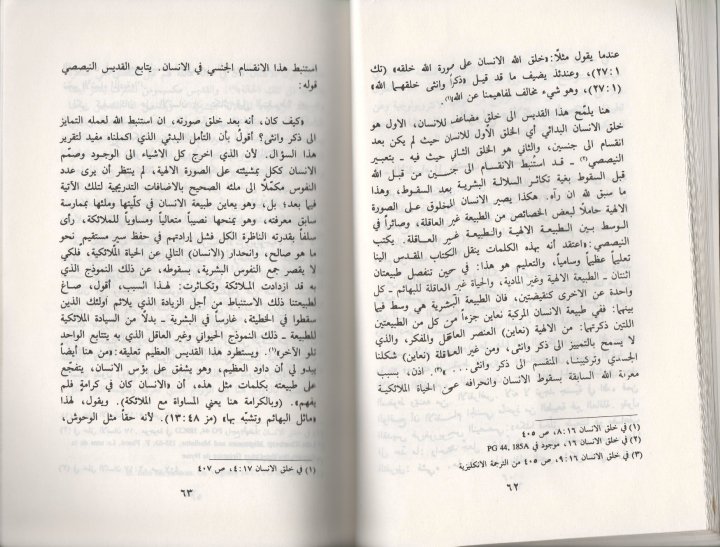 عندما يقول مثلًا: «خلق الله الانسان على صورة الله خلقه» (تك
٢٧:١)، وعندئذ يضيف ما قد قيل «ذكراً وانثى خلقهما الله»
(٢٧:١)، وهو شيء مخالف لمفاهيمنا عن الله»(١).
هنا يلمّح هذا القديس الى خلق مضاعف للانسان، الاول هو
خلق الانسان البدائي أي الخلق الأول للانسان حيث لم يكن بعد
انقسام الى جنسين، والثاني هو الخلق الثاني حيث فيه - بتعبير
النيصصي(٢) - قد استُنبط الانقسام الى جنسين من قبل الله
قبل السقوط بغية تكاثر السلالة البشرية بعد السقوط، وهذا
ما سبق لله ان رآه. هكذا يصير الانسان المخلوق على الصورة
الالهية حاملًا لبعض الخصائص من الطبيعة غير العاقلة، وصائراً في
الوسط بين الطبيعة الالهية والطبيعة غير العاقلة. يكتب
النيصصي: «اعتقد أنه بهذه الكلمات ينقل الكتاب المقدس الينا
تعليماً عظيماً وسامياً، والتعليم هو هذا: في حين تنفصل طبيعتان
اثنتان - الطبيعة الالهية وغير المادية، والحياة غير العاقلة للبهائم - كل
واحدة عن الاخرى كنقيضتين، فان الطبيعة البشرية هي وسط فيما
بينهما: ففي طبيعة الانسان المركبة نعاين جزءاً من كل من الطبيعتين
اللتين ذكرتهما: من الالهية (نعاين) العنصر العاقل والمفكر، والذي
لا يسمح بالتمييز الى ذكر وانثى، ومن غير العاقلة (نعاين) شكلنا
الجسدي وتركيبنا، المنقسم الى ذكر وانثى... »(٣). اذن، بسبب
معرفة الله السابقة بسقوط الانسان وانحرافه عن الحياة الملائكية
(١) في خلق الانسان ٨:١٦، ص ٤٠٥
(٢) في خلق الانسان ١٦، موجود في PG 44, 185A
(٣) في خلق الانسان ٩:١٦، ص ٤٠٥ من الترجمة الانكليزية
٦٢
استنبط هذا الانقسام الجنسي في الانسان. يتابع القديس النيصصي
قوله:
«كيف كان، أنه بعد خلق صورته، ان استنبط الله لعمله التمايز
الى ذكر وانثى؟ أقولُ بأن التأمل البدئي الذي اكملناه مفيد لتقرير
هذا السؤال. لأن الذي اخرج كل الاشياء الى الوجود وصمّم
الانسان ككل بمشيئته على الصورة الالهية، لم ينتظر أن يرى عدد
النفوس مكمّلًا الى ملئه الصحيح بالاضافات التدريجية لتلك الآتية
فيما بعد؛ بل، وهو يعاين طبيعة الانسان في كلّيتها وملئها بممارسة
سابق معرفته، وهو يمنحها نصيباً متعالياً ومساوياً للملائكة، رأى
سلفاً بقدرته الناظرة الكل فشل إرادتهم في حفظ سير مستقيم نحو
ما هو صالح، وانحدار (الانسان) التالي عن الحياة الملائكية، فلكي
لا يقصر جمع النفوس البشرية، بسقوطه، عن ذلك النموذج الذي
به قد ازدادت الملائكة وتكاثرت: لهذا السبب، أقول، صاغ
لطبيعتنا ذلك الاستنباط من أجل الزيادة الذي يلائم أولئك الذين
سقطوا في الخطيئة، غارساً في البشرية - بدلًا من السيادة الملائكية
للطبيعة - ذلك النموذج الحيواني وغير العاقل الذي به يتتابع الواحد
تلو الآخر»(١). ويستطرد هذا القديس العظيم تعليقه: «من هنا أيضاً
يبدو لي أن داود العظيم، وهو يشفق على بؤس الانسان، يتفجّع
على طبيعته بكلمات مثل هذه، أن «الانسان كان في كرامةٍ فلم
يفهم». (وبالكرامة هنا يعني المساواة مع الملائكة). ويقول، لهذا
«ماثل البهائم وتشبّه بها» (مز ١٣:٤٨). لأنه حقاً مثل الوحوش،
(١) في خلق الانسان ٤:١٧، ص ٤٠٧
٦٣